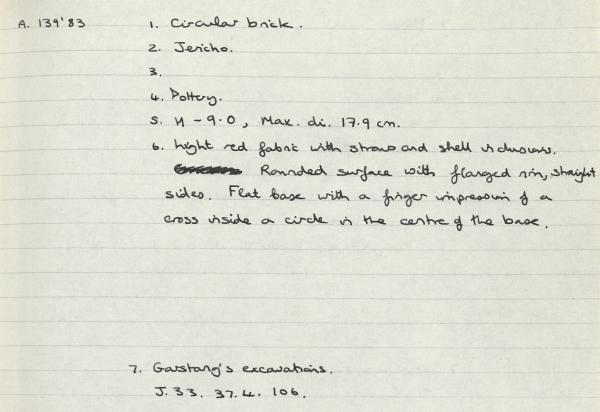 A. 139'83 1. Circular brick.
2. Jericho.
3.
4. Pottery.
5. H – 9.0, Max. di. 17.9 cm.
6. Light red fabric with straw and shell inclusions.
Rounded surface with flanged rim, straight
sides. Flat base with a finger impression of a
cross inside a circle in the centre of the base.
7. Garstang's excavations.
J. 33. 37.4. 106.